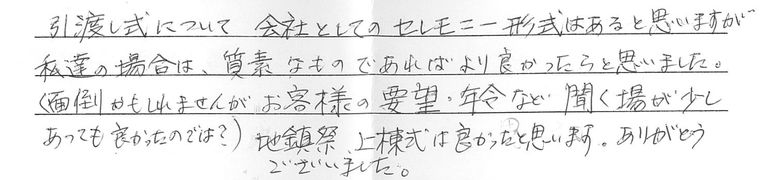 引渡し式について 会社としてのセレモニー形式はあると思いますが
私達の場合は、質素なものであればより良かったらと思いました。
(面倒かもしれませんがお客様の要望・年令など聞く場が少し
あっても良かったのでは？)地鎮祭、上棟式は良かったと思います。ありがとう
ございました。